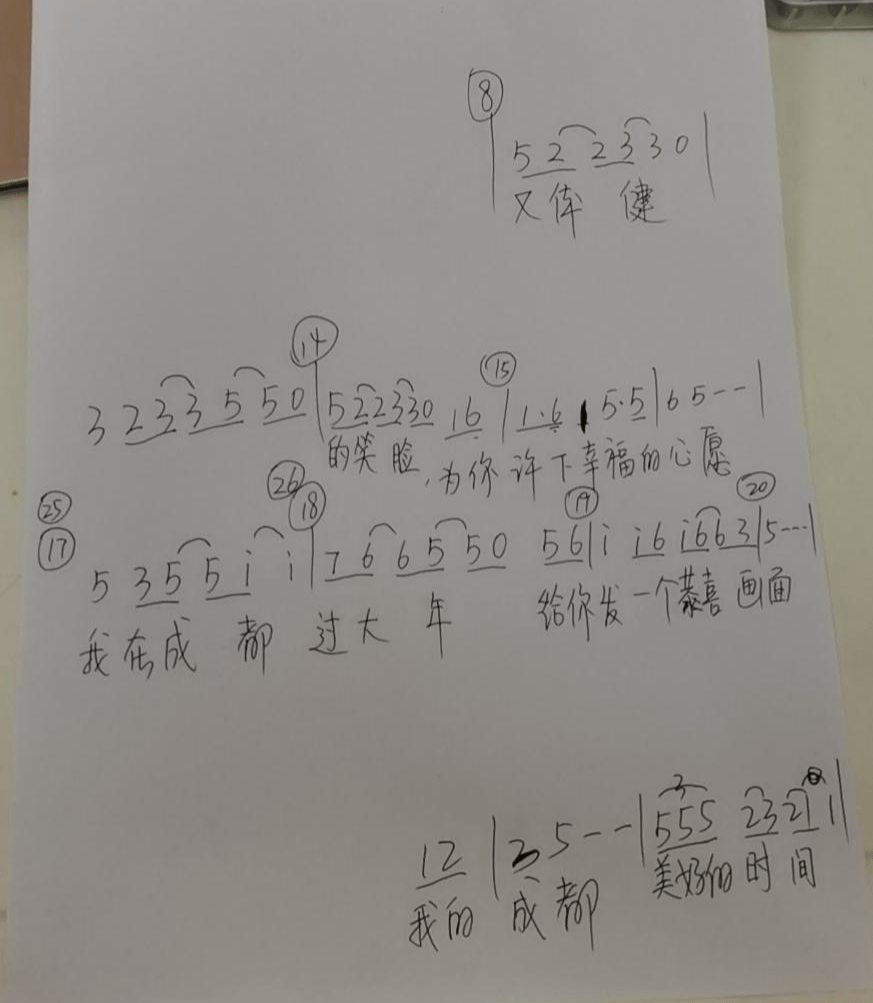 ⑧
| 5 2 2 3 3 0 |
又体 健
⑭ ⑮
3 2 3 3 5 5 0 | 5 2 2 3 3 0 1 6 | 1 · 6 1 5 · 5 | 6 5 - - |
的笑脸,为你许下幸福的心愿
㉕ ㉖
⑰ ⑱ ⑲ ⑳
5 3 5 5 i i | 7 6 6 5 5 0 5 6 | i i 6 i 6 6 3 | 5 - - - |
我在成都过大年 给你发一个恭喜画面
3
1 2 | 3 5 - - | 5 5 5 2 3 2 1 1 |
我的成都 美好的时间